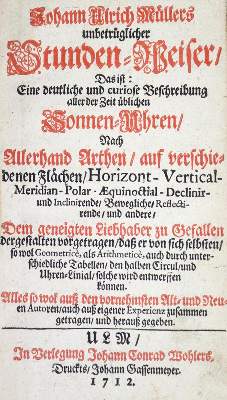 Johann Ulrich Müllers
unbetrüglicher
Stunden-Weiser/
Das ist:
Eine deutliche und curiose Beschreibung
aller der Zeit üblichen
Sonnen-Uhren/
Nach
Allerhand Arthen/ auf verschie-
denen Flächen/ Horizont- Vertical-
Meridian- Polar- Æquinoctial- Declinir-
und Inclinirende/ Bewegliche/ Reflecti-
rende/ und andere/
Dem geneigten Liebhaber zu Gefallen
dergestalten vorgetragen/ daß er von sich selbsten/
so wol Geometricè, als Arithmeticè, auch durch unter-
schiedliche Tabellen/ den halben Circul/ und
Uhren-Linial/ solche wird entwerffen
können.
Alles so wol auß den vornehmsten Alt- und Neu-
en Autoren/ auch auß eigener Experienz zusammen
getragen/ und herauß gegeben.
ULM/
In Verlegung Johann Conrad Wohlers,
Druckts/ Johann Gassenmeyer.
1712.